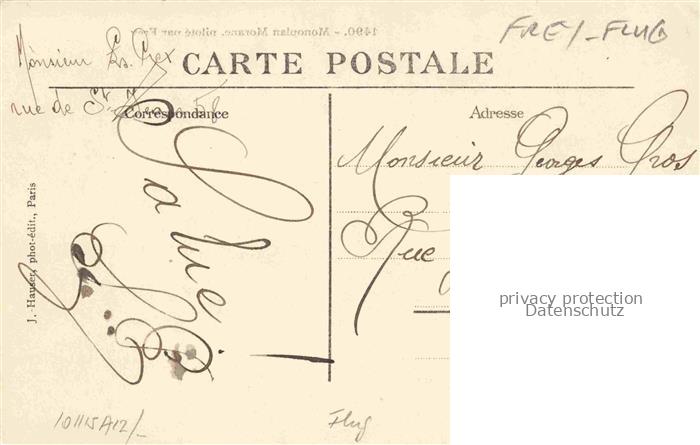 1490. - Monoplan Morane, piloté par Frey
FREY - FLUG
Monsieur
CARTE POSTALE
rue de St
58
Correspondance
Adresse
Monsieur Georges Gros
Rue
Salue
J. Hauser, phot-édit., Paris
privacy protection
Datenschutz
Flug